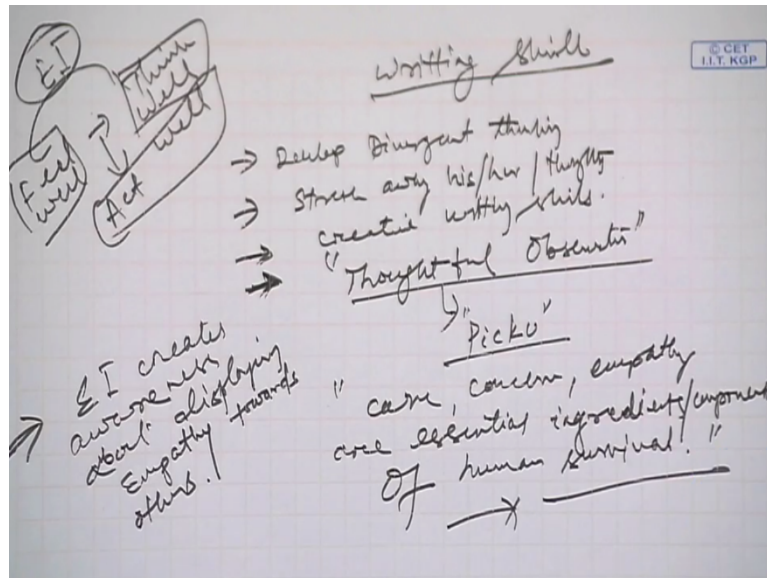 EI
Think
Well
Feel
well
Act well
Writting Skill
© CET
I.I.T. KGP
→ Develop Divergent thinking
→ away his/her / thoughts
→ creative writing skills.
→ "Thoughtful Observation"
"Picku"
" care, concern, empathy
are essential ingredients/components
Of human survival."
→ EI creates
awareness
about displaying
Empathy towards
others.